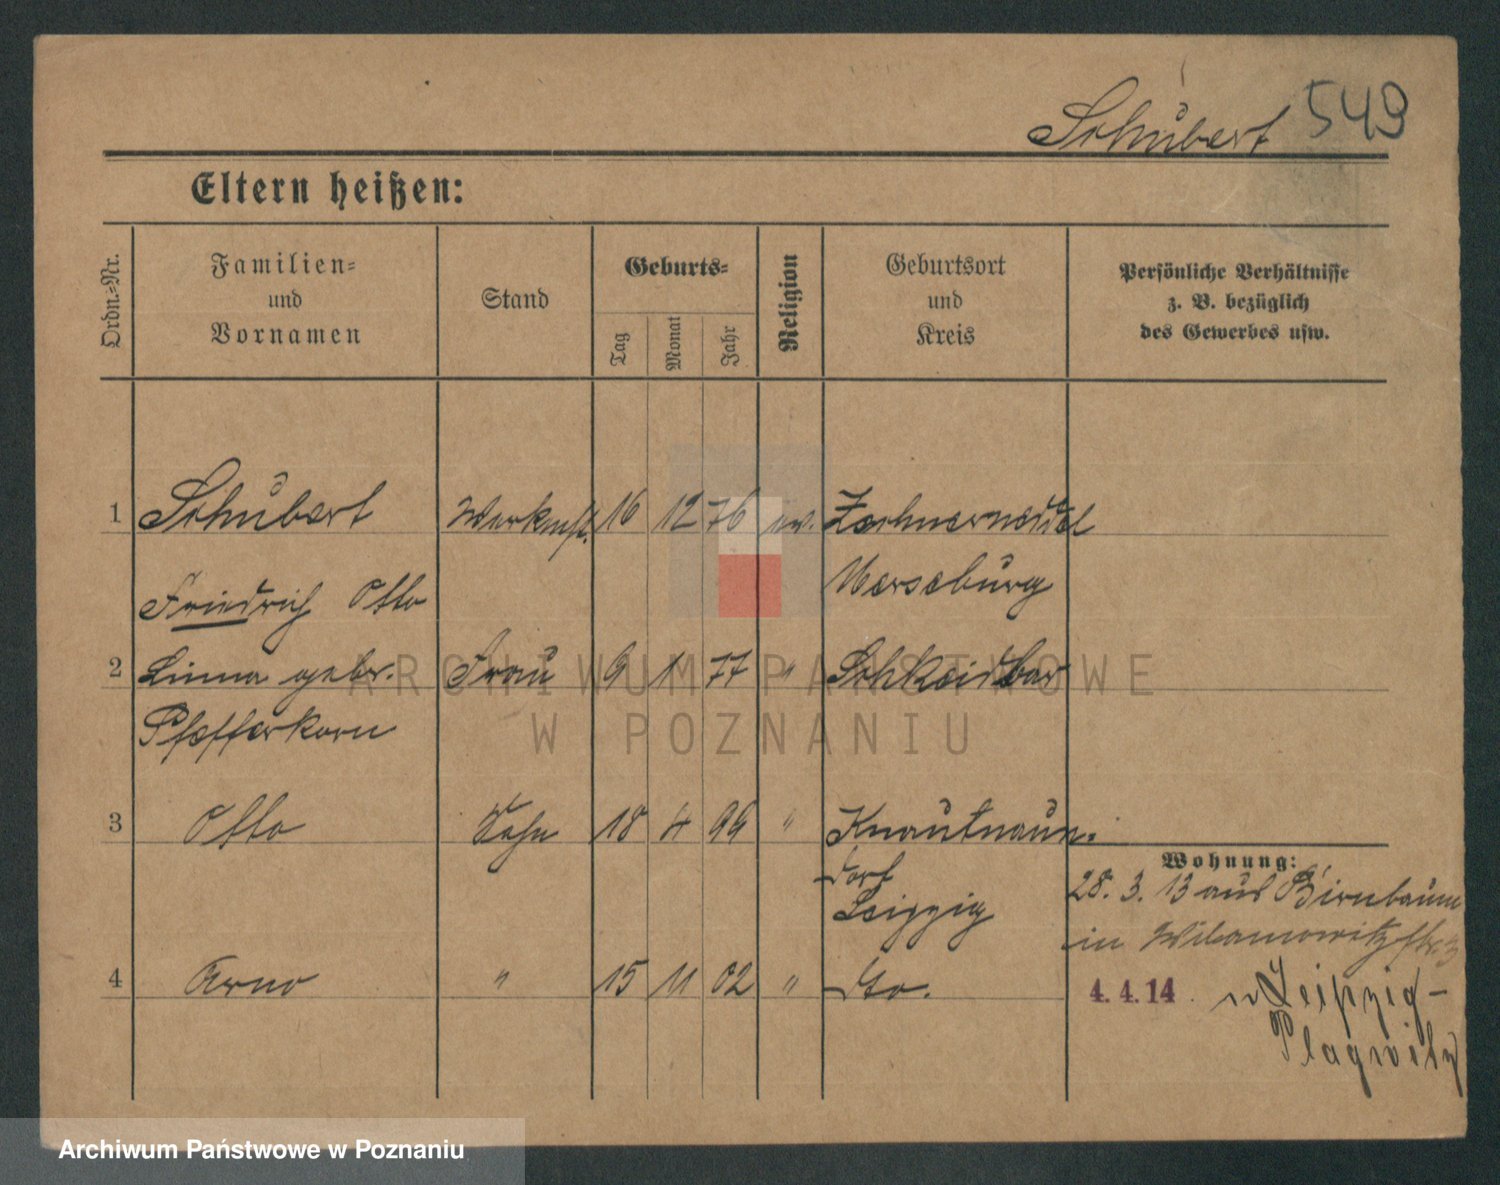 Schubert 549
Eltern heißen:
Ordn.-Nr.
Familien-
und
Vornamen
Stand
Geburts-
Tag
Monat
Jahr
Religion
Geburtsort
und
Kreis
Persönliche Verhältnisse
z. B. bezüglich
des Gewerbes usw.
1 Schubert Werkmst. 16 12 76 ev.
Friedrich Otto Merseburg
2 Linna gebr. Frau 9 1 77 " Schkeitbar
Pfefferkorn
3 Otto Sohn 18 4 99 " Knautnaun-
dorf
Leipzig
Wohnung:
28. 3. 13 aus Birnbaum
in Wilamowitzstr.
4 Arno " 15 11 02 " dto.
4. 4. 14 n Leipzig-
Plagwitz
ARCHIWUM PAŃSTWOWE
W POZNANIU
Archiwum Państwowe w Poznaniu